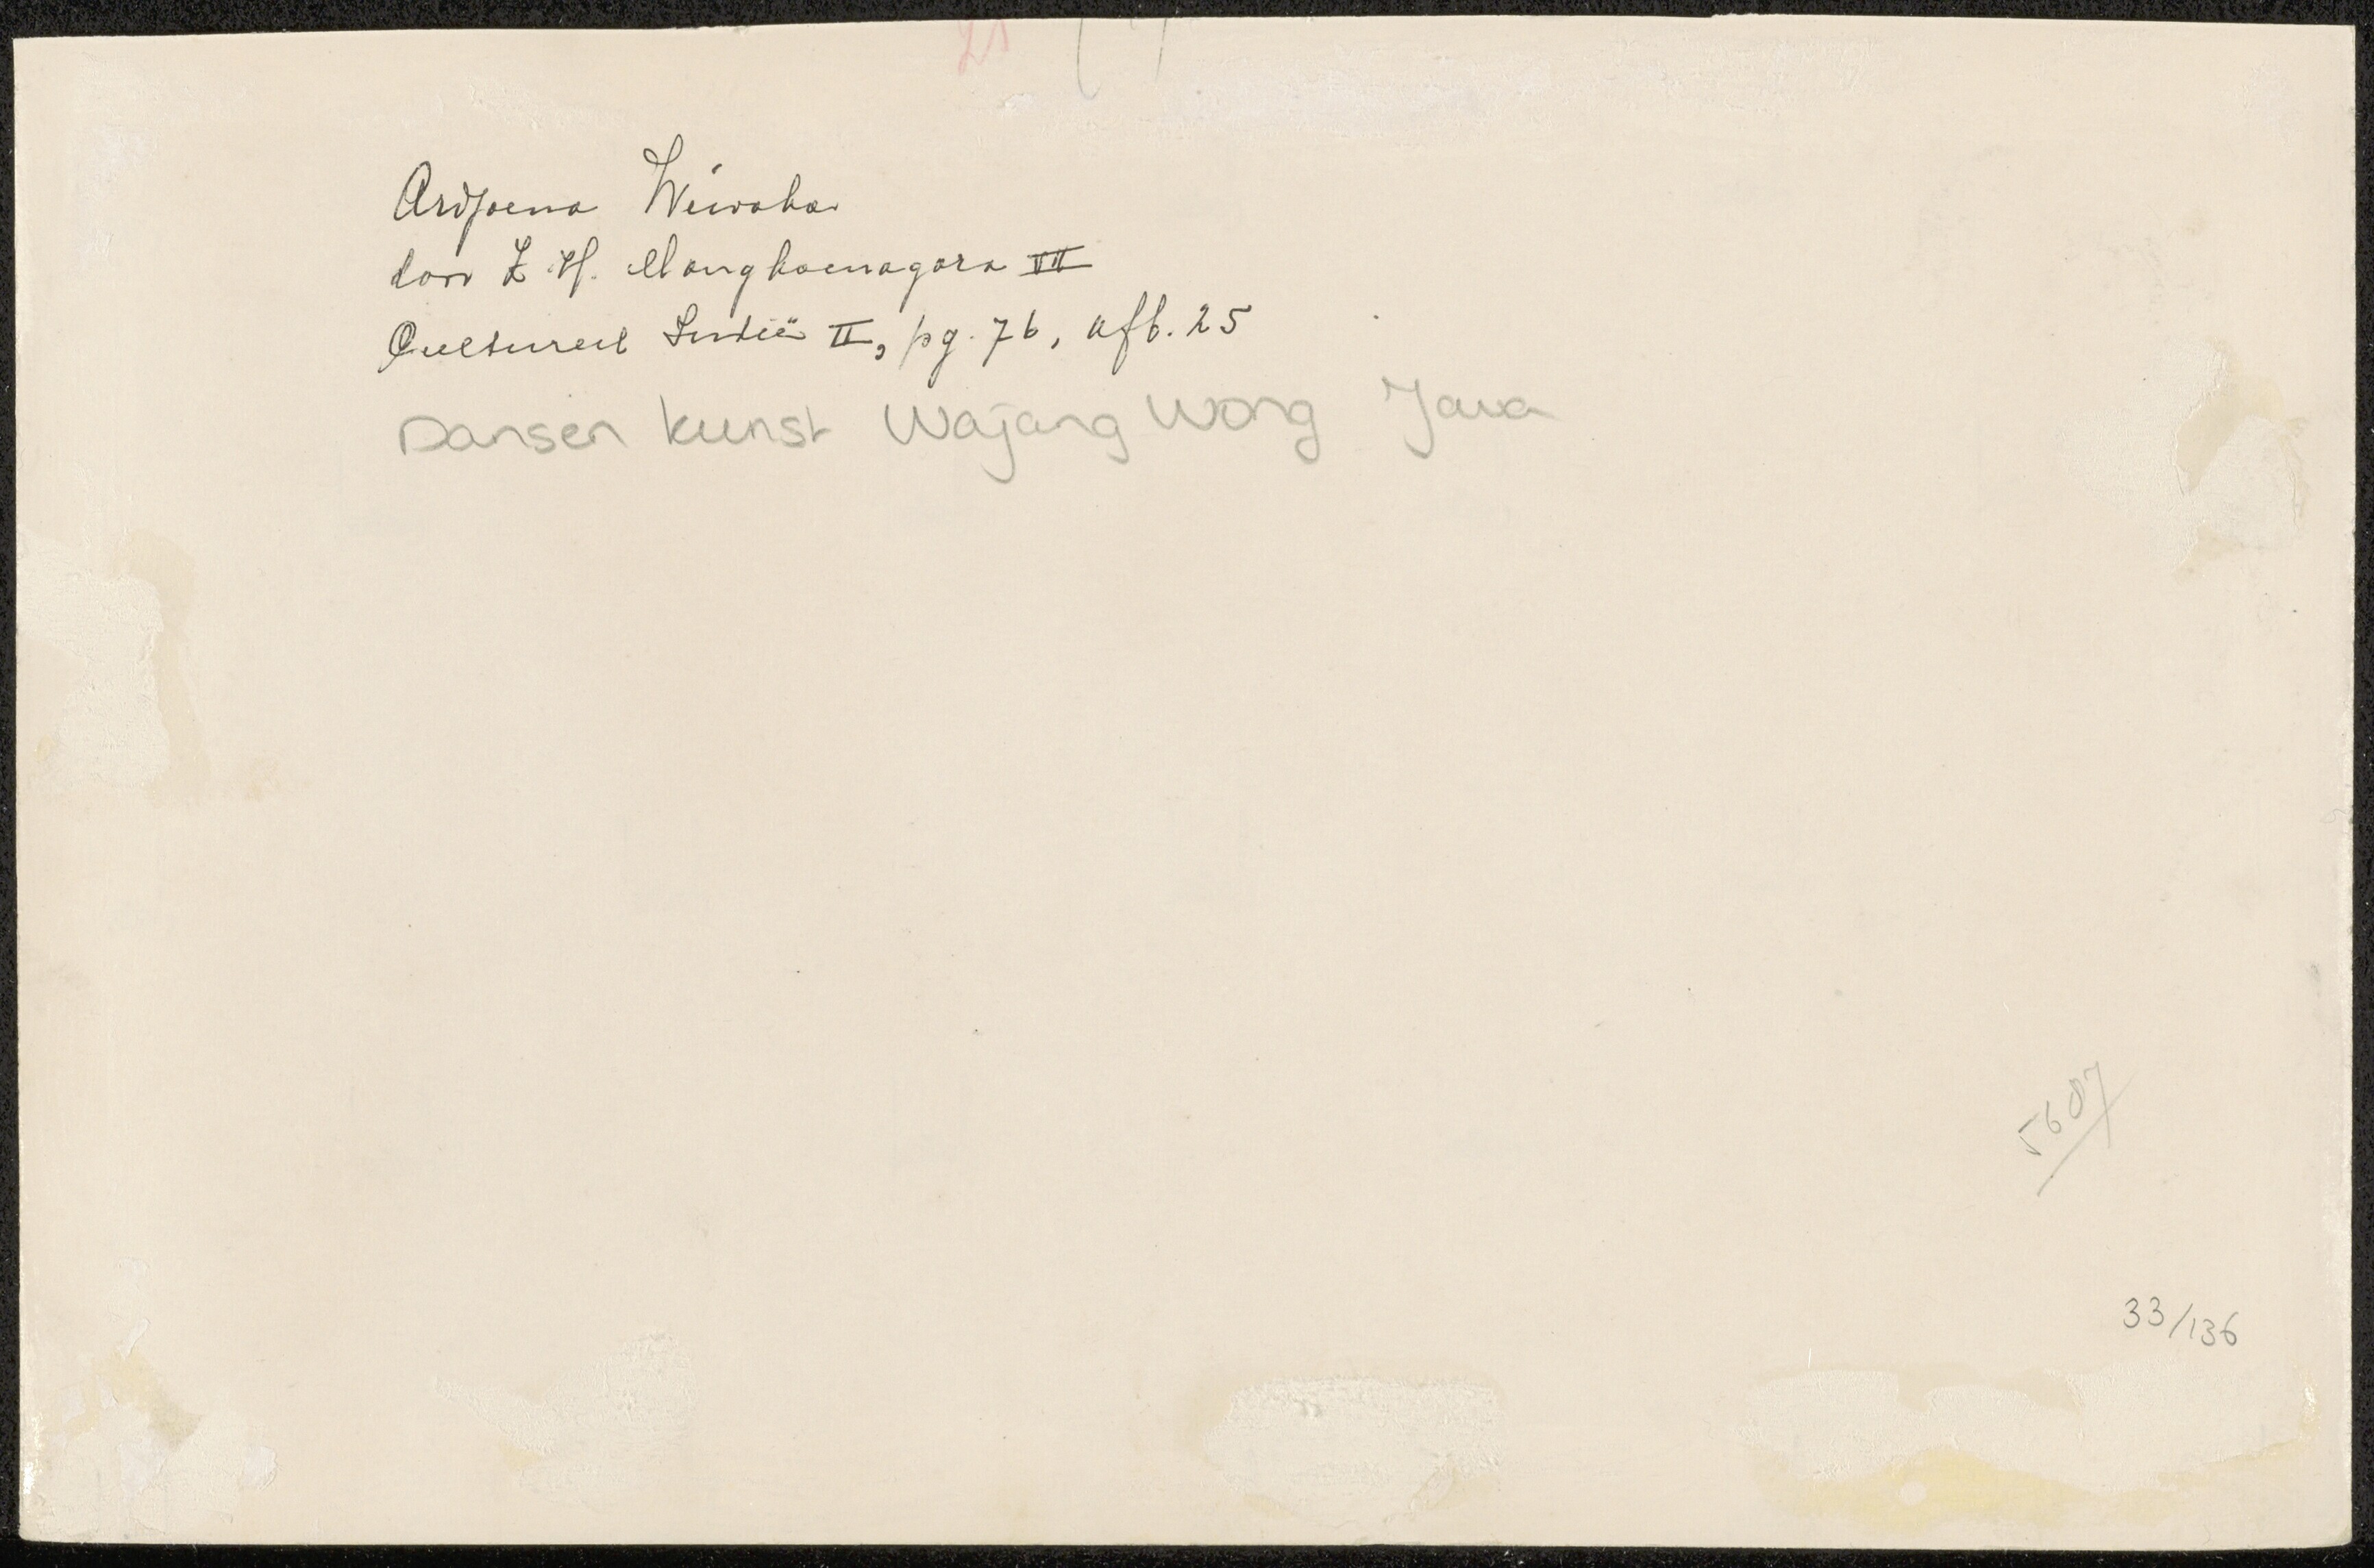 Ardjoena Wiwaha
door Z.H. Mangkoenagara VII
Cultureel Indië II, pg. 76, afb. 25
Dansen kunst Wajang Wong Java
5607
33/136